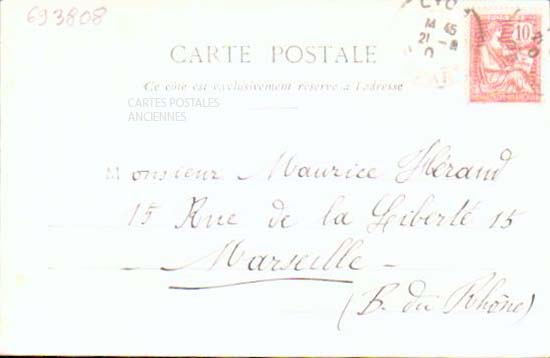 693808
14 45
21
10
CARTE POSTALE
Ce côté est exclusivement réservé à l'adresse
CARTES POSTALES
ANCIENNES
Monsieur Maurice Hérand
15 Rue de la Liberté 15
Marseille
(B. du Rhône)